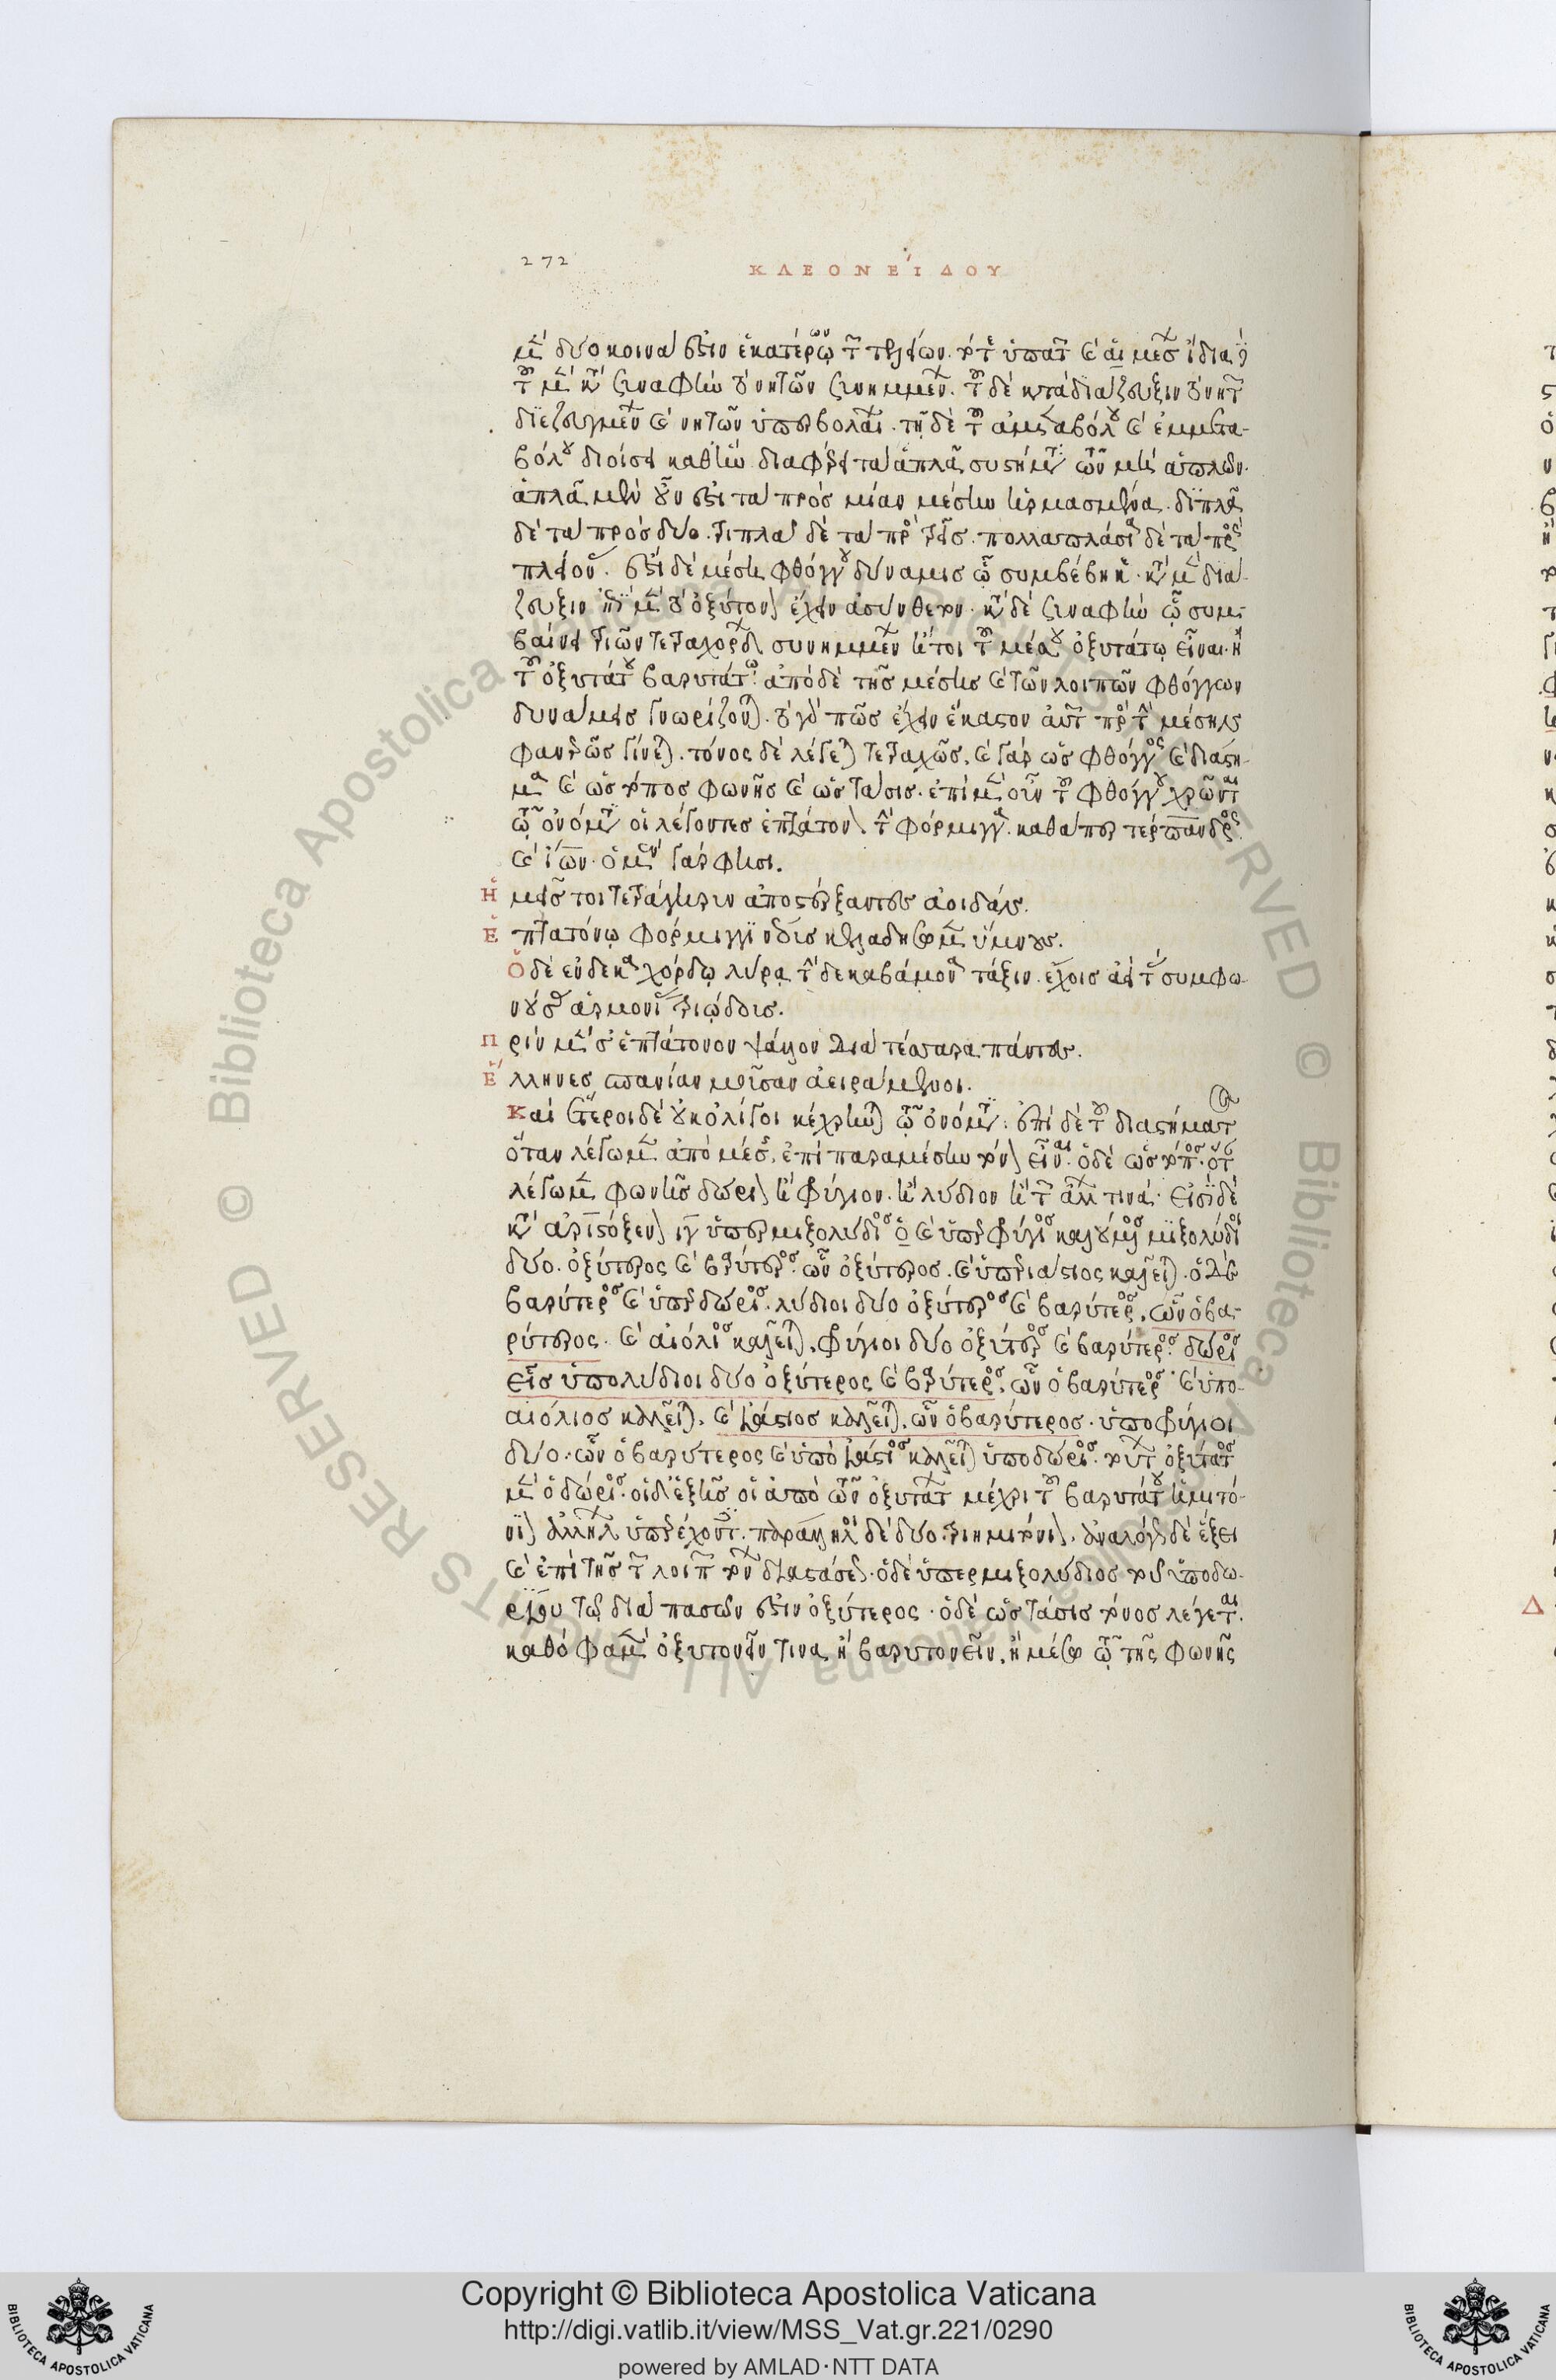 272
ΚΛΕΟΝΕΊΔΟΥ
δύο κοινά ἐστιν ἑκατέρω τελείων
συναφὴν
διεζευγμεν καὶ νητῶν ὑπερβολαι· τῇ δὲ τοῦ ἀμεταβόλου καὶ ἐμμετα-
βόλου διοίσει καθ' ἣν διαφέρει τὰ ἁπλᾶ συστήματα τῶν μὴ ἁπλῶν·
ἁπλᾶ μὲν οὖν ἐστι τὰ πρὸς μίαν μέσην ἡρμοσμένα. διπλᾶ
δὲ τὰ πρὸς δύο. τριπλᾶ δὲ τὰ πρὸς τρεῖς. πολλαπλάσια δὲ τὰ πρὸς
πλείους. ἔστι δὲ μέση φθόγγου δύναμις ᾧ συμβέβηκε· κατὰ μὲν διά-
ζευξιν ἔχειν ἀσύνθετον· κατὰ δὲ συναφὴν ᾧ συμ-
βαίνει τριῶν τετραχόρδων συνημμένων ἤτοι τοῦ μέσου ὀξυτάτῳ εἶναι· ἢ
τοῦ ὀξυτάτου βαρυτάτῳ· ἀπὸ δὲ τῆς μέσης καὶ τῶν λοιπῶν φθόγγων
δυνάμεις γνωρίζονται. τὸ γὰρ πῶς ἔχειν ἕκαστον αὐτῶν πρὸς τὴν μέσην
φανερῶς γίνεται. τόνος δὲ λέγεται τετραχῶς. καὶ γὰρ ὡς φθόγγος καὶ διάστη-
μα καὶ ὡς τόπος φωνῆς καὶ ὡς τάσις. ἐπὶ μὲν οὖν τοῦ φθόγγου χρῶνται
τῷ ὀνόματι οἱ λέγοντες ἑπτάτονον τὴν φόρμιγγα. καθάπερ τέρπανδρος
καὶ ἴων· ὁ μὲν γάρ φησι.
Ἡμεῖς τοι τετράγηριν ἀποστέρξαντες ἀοιδάν.
Ἑπτατόνῳ φόρμιγγι κελαδήσομεν ὕμνους.
Ὁ δὲ ἑνδεκαχόρδῳ λύρᾳ τὴν δεκαβάμονα τάξιν. ἔχοις ἀεὶ τὰς συμφω-
νούσας ἁρμονίας τριόδοις.
Πρὶν μέν σ' ἑπτάτονον ψάλλον διὰ τέσσαρα πάντες.
Ἕλληνες σπανίαν μοῦσαν ἀειράμενοι.
Καὶ ἕτεροι δὲ οὐκ ὀλίγοι κέχρηνται τῷ ὀνόματι· ἐπὶ δὲ τοῦ διαστήματος
ὅταν λέγωμεν ἀπὸ μέσης ἐπὶ παραμέσην τόνον εἶναι. ὁ δὲ ὡς τόπος· ὅταν
λέγωμεν φωνῆς δώριον ἢ φρύγιον. ἢ λύδιον ἢ τῶν ἄλλων τινά. εἰσὶ δὲ
κατὰ ἀριστόξενον ιγ ὑπερμιξολύδιος ὁ καὶ ὑπερφρύγιος καλούμενος μιξολύδιοι
δύο. ὀξύτερος καὶ βαρύτερος. ὧν ὀξύτερος. καὶ ὑπεριάστιος καλεῖται. ὁ δὲ
βαρύτερος καὶ ὑπερδώριος. λύδιοι δύο ὀξύτερος καὶ βαρύτερος. ὧν ὁ βα-
ρύτερος. καὶ αἰόλιος καλεῖται. φρύγιοι δύο ὀξύτερος καὶ βαρύτερος. δώριος
εἷς ὑπολύδιοι δύο ὀξύτερος καὶ βαρύτερος. ὧν ὁ βαρύτερος καὶ ὑπο-
αιόλιος καλεῖται. καὶ ἰάστιος καλεῖται. ὧν ὁ βαρύτερος. ὑποφρύγιοι
δύο. ὧν ὁ βαρύτερος καὶ ὑποϊάστιος καλεῖται ὑποδώριος. τούτων ὀξύτατος
μὲν ὁ δώριος. οἱ δ' ἑξῆς οἱ ἀπὸ τῶν ὀξυτάτου μέχρι τοῦ βαρυτάτου ἡμιτό-
νιον ἀλλήλων ὑπερέχοντες. παράλληλοι δὲ δύο. τριημιτόνιον. ἀνάλογον δὲ ἕξει
καὶ ἐπὶ τῆς τῶν λοιπῶν τόνων διαστάσεως. ὁ δὲ ὑπερμιξολύδιος τοῦ ὑποδω-
ρίου τῷ διὰ πασῶν ἐστιν ὀξύτερος. ὁ δὲ ὡς τάσις τόνος λέγεται.
καθό φαμεν ὀξυτονεῖν τινα. ἢ βαρυτονεῖν. ἢ μέσῳ τῷ τῆς φωνῆς
Δ
© Biblioteca Apostolica Vaticana ALL RIGHTS RESERVED
Copyright © Biblioteca Apostolica Vaticana
http://digi.vatlib.it/view/MSS_Vat.gr.221/0290
powered by AMLAD·NTT DATA
BIBLIOTECA APOSTOLICA VATICANA
BIBLIOTECA APOSTOLICA VATICANA